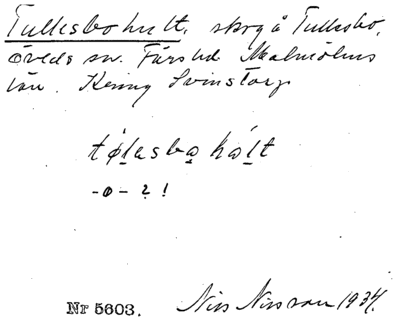 Tullesbo hult, skog å Tullesbo,
Öveds sn. Färs hd Malmöhus
län. Henry Svinstorp
tǿlasbo hólt
-o- 2 !
Nr 5603. Nils Nilsson 1934.